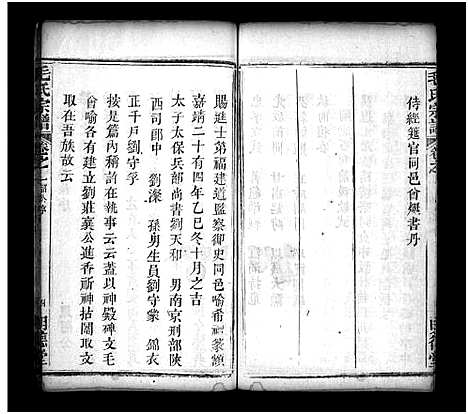 毛氏宗譜
卷之
侍經筵官同邑曾爌書丹
明德堂
賜進士第福建道監察御史同邑喻希禮篆額
嘉靖二十有四年乙巳冬十月之吉
太子太保兵部尚書劉天和　男南京刑部陝
西司郎中　劉濚　孫男生員劉守蒙　錦衣
正千戶劉守孚
按是篇內稱許在執事云云蓋以神殿碑文毛
會喻各有建立劉莊襄公進香所神拈鬮取文
取在吾族故云
毛氏宗譜
卷之一
明德堂